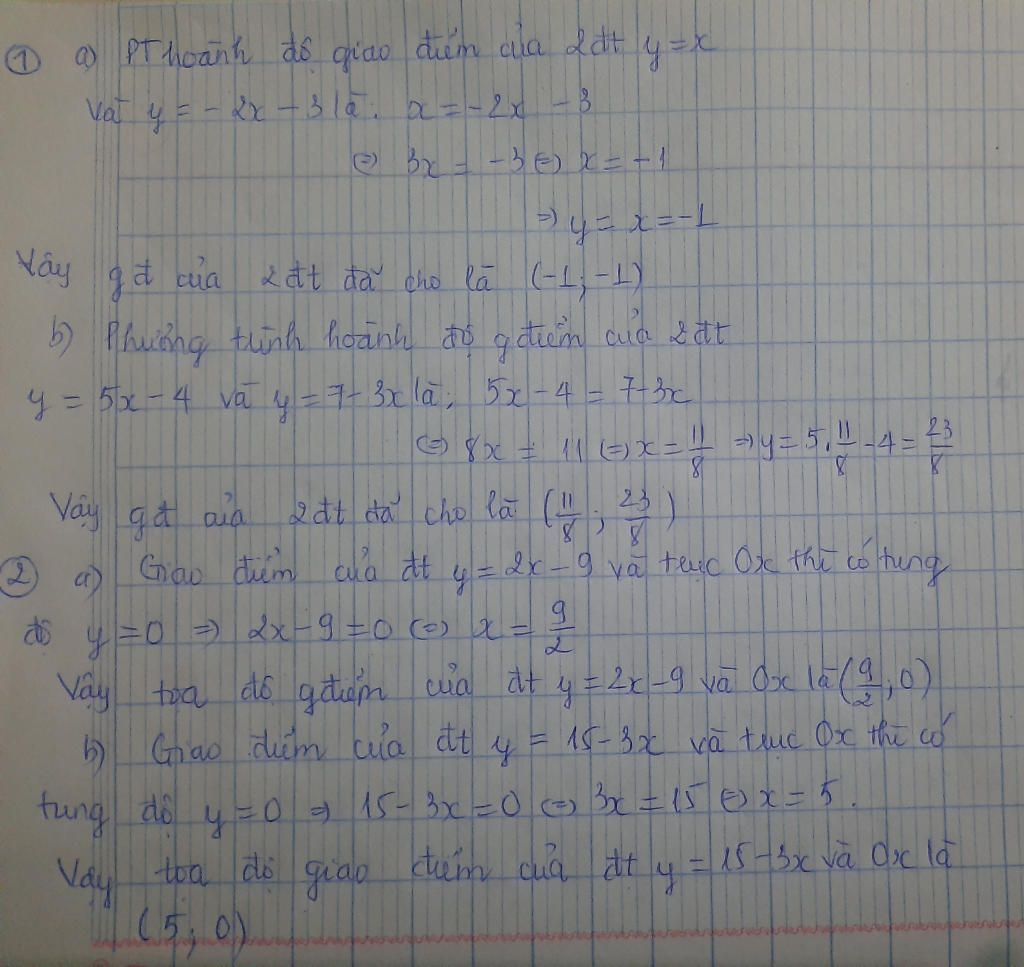 ① a) PT hoành độ giao điểm của 2 đt y = x
và y = - 2x - 3 là: x = -2x - 3
⇔ 3x = -3 ⇔ x = -1
⇒ y = x = -1
Vậy gđ của 2 đt đã cho là (-1; -1)
b) Phương trình hoành độ gđiểm của 2 đt
y = 5x - 4 và y = 7 - 3x là: 5x - 4 = 7 - 3x
⇔ 8x = 11 ⇔ x = 11/8 ⇒ y = 5.11/8 - 4 = 23/8
Vậy gđ của 2 đt đã cho là (11/8; 23/8)
② a) Giao điểm của đt y = 2x - 9 và trục Ox thì có tung
độ y = 0 ⇒ 2x - 9 = 0 ⇔ x = 9/2
Vậy toạ độ gđiểm của đt y = 2x - 9 và Ox là (9/2; 0)
b) Giao điểm của đt y = 15 - 3x và trục Ox thì có
tung độ y = 0 ⇒ 15 - 3x = 0 ⇔ 3x = 15 ⇔ x = 5.
Vậy tọa độ giao điểm của đt y = 15 - 3x và Ox là
(5; 0)